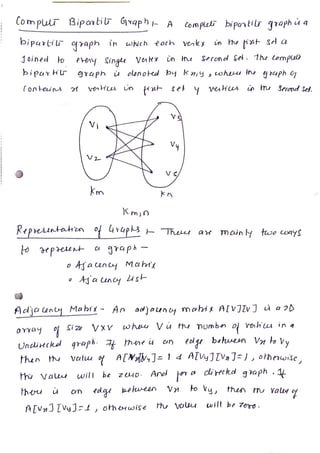 Complete Bipartite Graph :- A complete bipartite graph is a
bipartite graph in which each vertex in the first set is
Joined to every single vertex in the second set. The complete
bipartite graph is denoted by Kx,y, where the graph G
contains x vertices in first set y vertices in the second set.
V1
V2
V3
V4
V5
Km
Kn
Km,n
Representation of Graphs :- There are mainly two ways
to represent a graph -
o Ajacency Matrix
o Ajacency List
Adjacency Matrix - An adjacency matrix A[V][V] is a 2D
array of size VxV where V is the number of vertices in a
Undirected graph. If there is an edge between Vx to Vy
then the value of A[Vx][Vy]=1 & A[Vy][Vx]=1, otherwise,
the value will be zero. And for a directed graph. If
there is an edge between Vx to Vy, then the value of
A[Vx][Vy]=1, otherwise the value will be zero.